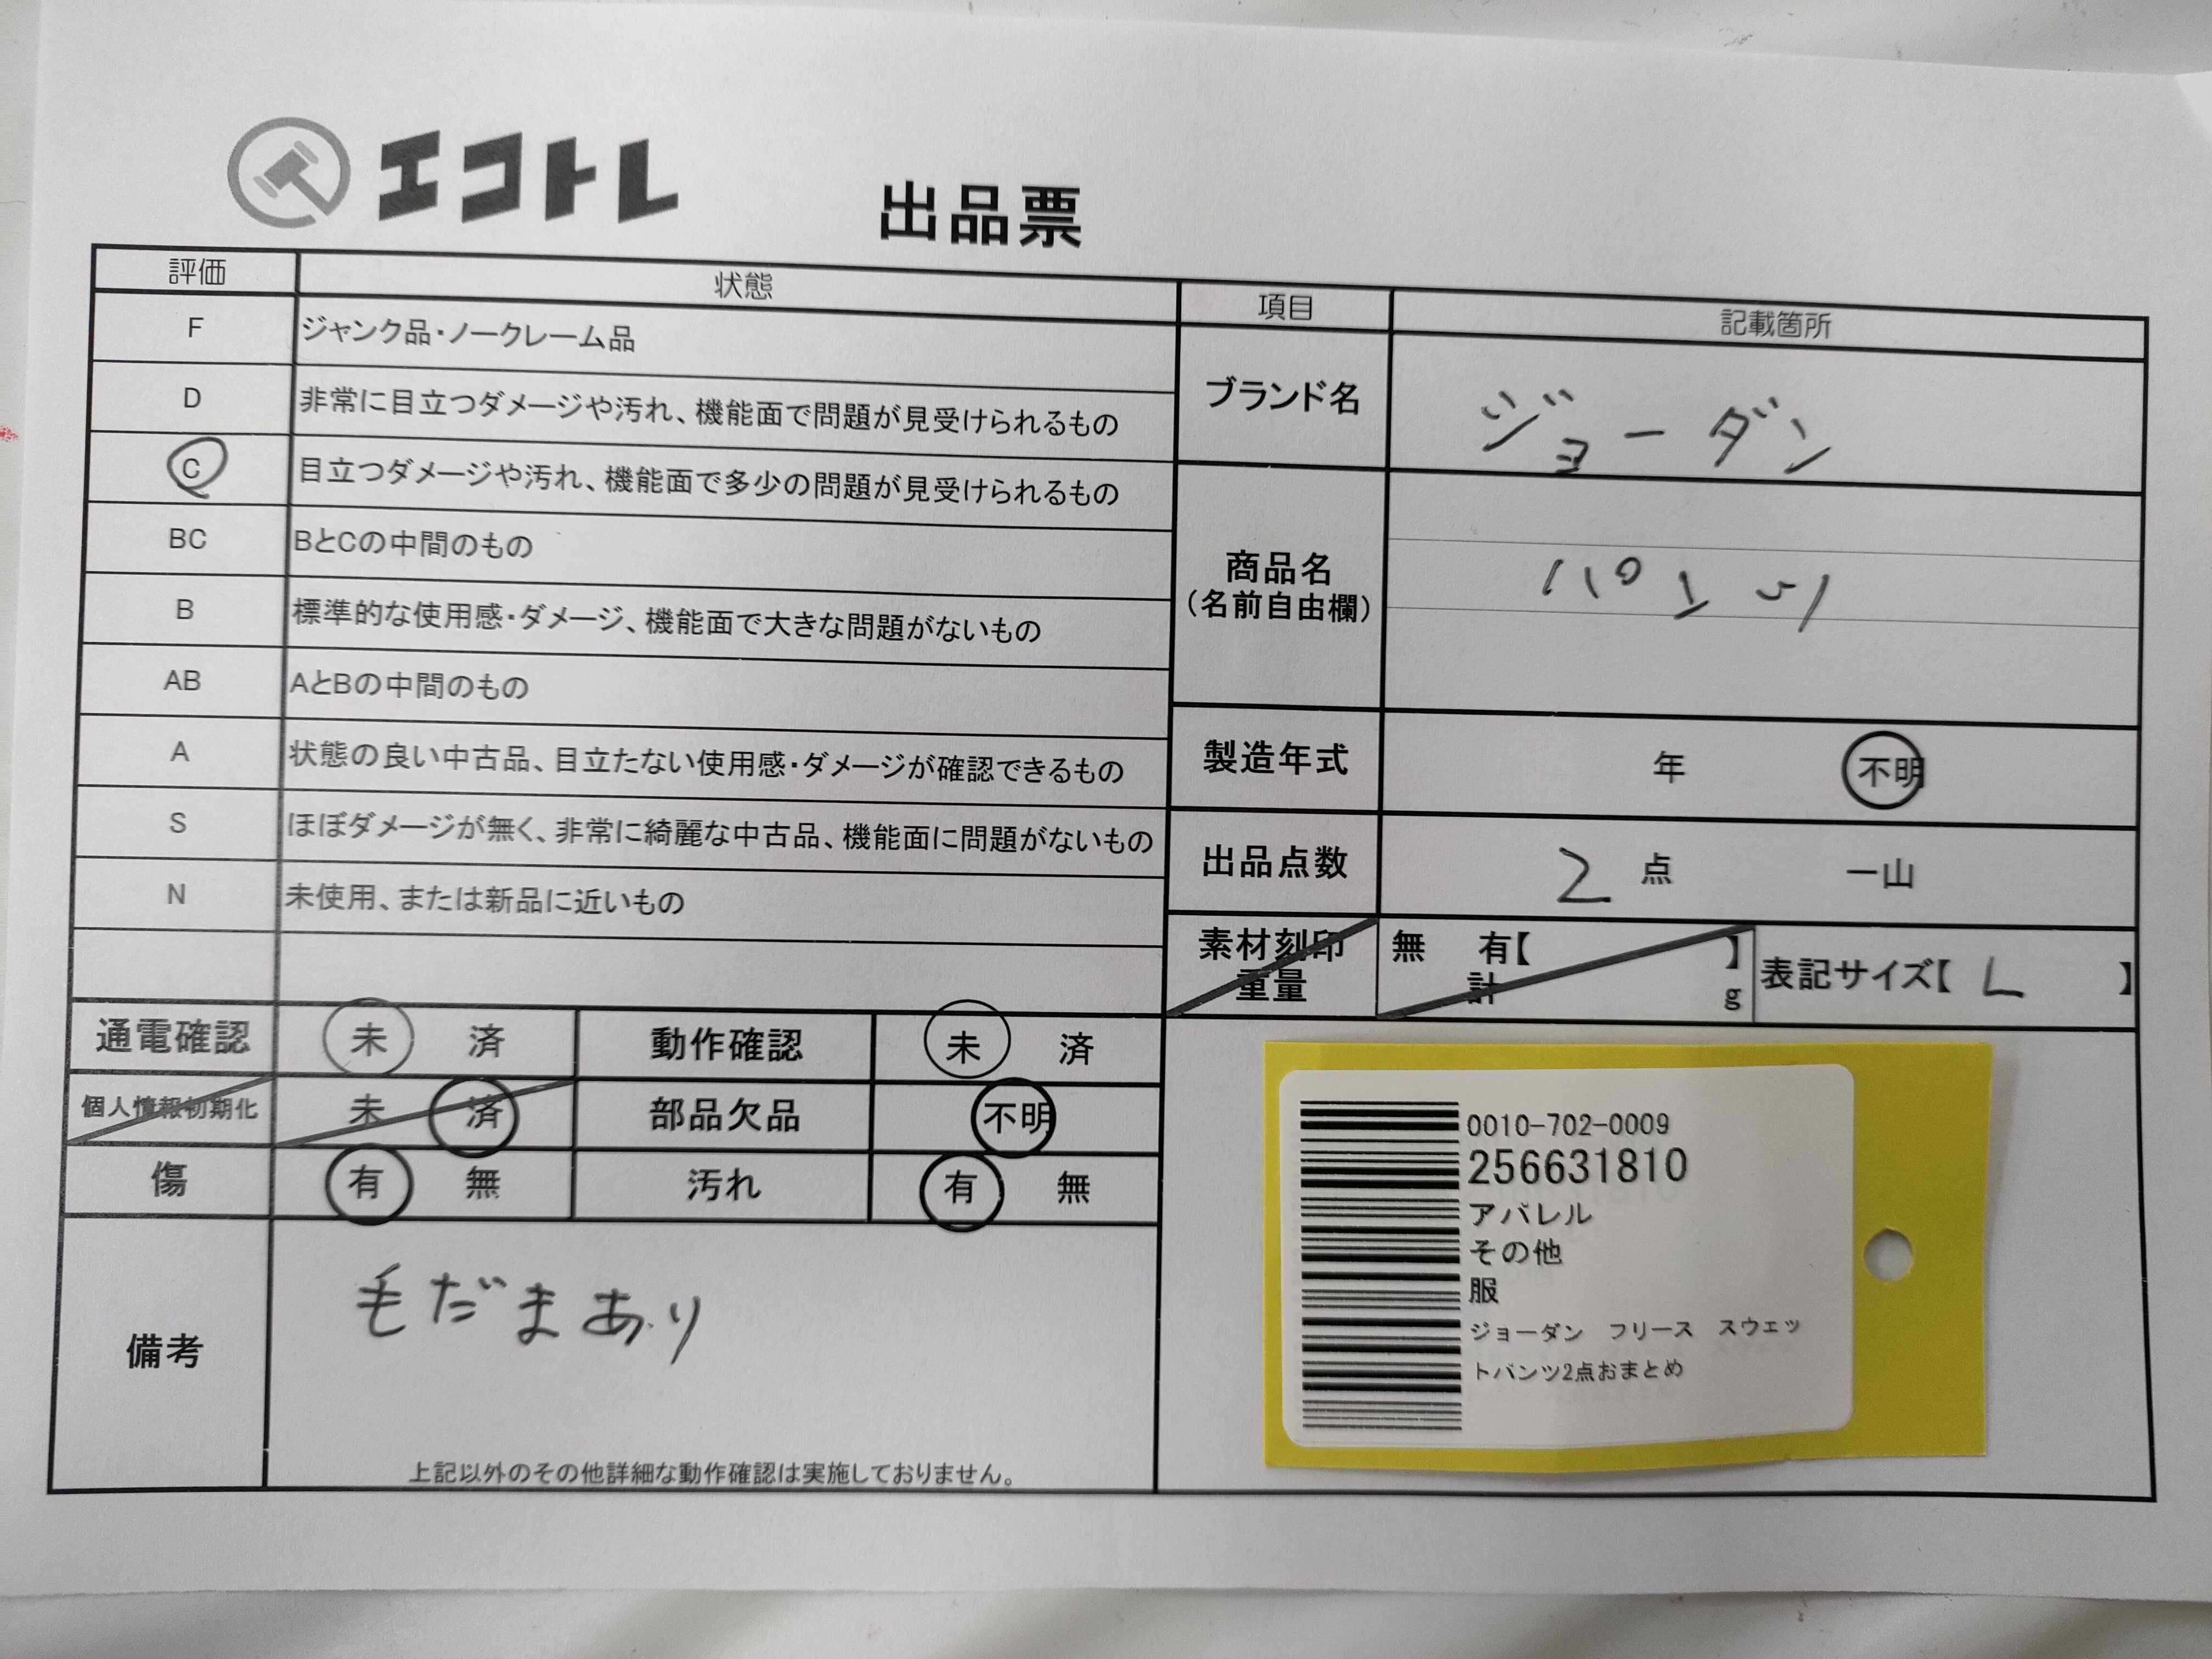 エコトレ
出品票
評価 状態
F ジャンク品・ノークレーム品
D 非常に目立つダメージや汚れ、機能面で問題が見受けられるもの
C 目立つダメージや汚れ、機能面で多少の問題が見受けられるもの
BC BとCの中間のもの
B 標準的な使用感・ダメージ、機能面で大きな問題がないもの
AB AとBの中間のもの
A 状態の良い中古品、目立たない使用感・ダメージが確認できるもの
S ほぼダメージが無く、非常に綺麗な中古品、機能面に問題がないもの
N 未使用、または新品に近いもの
項目 記載箇所
ブランド名 ジョーダン
商品名
(名前自由欄)
パンツ
製造年式 年 不明
出品点数 2 点 一山
素材刻印 無 有【 】
重量 計 g
表記サイズ【 L 】
通電確認 未 済 動作確認 未 済
個人情報初期化 未 済 部品欠品 不明
傷 有 無 汚れ 有 無
備考
毛だまあり
上記以外のその他詳細な動作確認は実施しておりません。
0010-702-0009
256631810
アパレル
その他
服
ジョーダン フリース スウェッ
トパンツ2点おまとめ